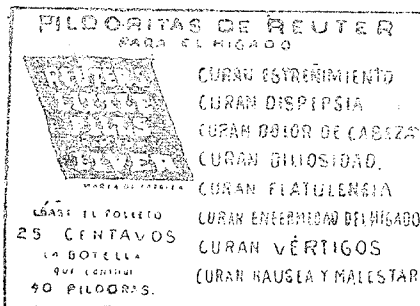 PILDORITAS DE REUTER
PARA EL HIGADO
REUTER'S
LITTLE
PILLS
LIVER
MARCA DE FABRICA
LÉASE EL FOLLETO
25 CENTAVOS
LA BOTELLA
QUE CONTIENE
40 PILDORAS.
CURAN ESTREÑIMIENTO
CURAN DISPEPSIA
CURAN DOLOR DE CABEZA
CURAN BILIOSIDAD.
CURAN FLATULENCIA
CURAN ENFERMEDAD DEL HIGADO
CURAN VÉRTIGOS
CURAN NAUSEA Y MALESTAR